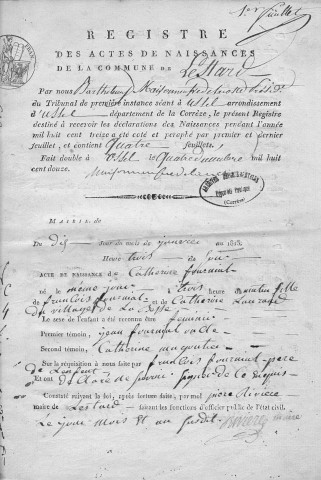 1er feuillet
REGISTRE
DES ACTES DE NAISSANCES
DE LA COMMUNE DE Lestard
Par nous Barthelemy
du Tribunal de première instance séant à Ussel arrondissement
d'Ussel département de la Corrèze, le présent Registre
destiné à recevoir les déclarations des Naissances pendant l'année
mil huit cent treize a été coté et paraphé par premier et dernier
feuillet, et contient quatre feuillets,
Fait double à Ussel le quatre décembre mil huit
cent douze.
(Corrèze)
MAIRIE de
Du dix jour du mois de janvier an 1813
Heure trois de soir
ACTE DE NAISSANCE de Catherine fournial
né le même jour à trois heure du matin fille
de françois fournial et de Catherine
du village de La
Le sexe de l'enfant a été reconnu être feminin
Premier témoin, jean fournial
Second témoin, Catherine
Sur la réquisition à nous faite par françois fournial père
de l'enfant
Et ont déclaré ne savoir signer de ce requis
Constaté suivant la loi, après lecture faite, par moi
maire de Lestard faisant les fonctions d'officier public de l'état civil.
Le jour mois et an susdit
maire